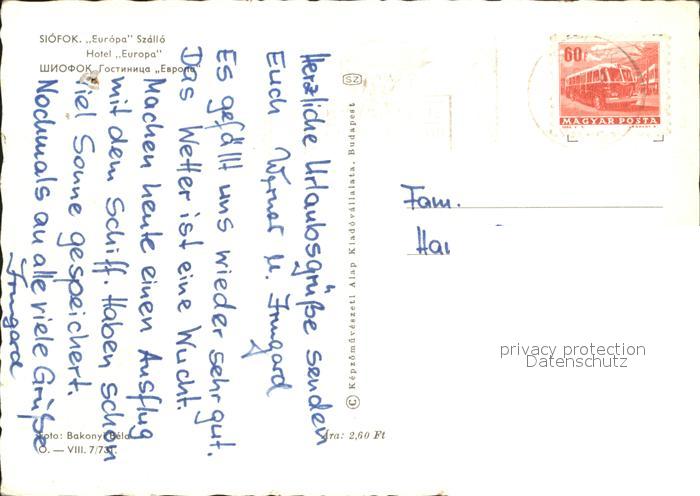 SIÓFOK. „Európa" Szálló
Hotel „Europa"
ШИОФОК Гостиница „Европа"
Herzliche Urlaubsgrüße senden
Euch Werner u. Irmgard
Es gefällt uns wieder sehr gut.
Das Wetter ist eine Wucht.
Machen heute einen Ausflug
mit dem Schiff. Haben schon
viel Sonne gespeichert.
Nochmals an alle viele Grüße
Irmgard
Foto: Bakonyi Béla
O. — VIII. 7/731.
Ára: 2,60 Ft
SZ
© Képzőművészeti Alap Kiadóvállalata, Budapest
60f
MAGYAR POSTA
Fam.
privacy protection
Datenschutz